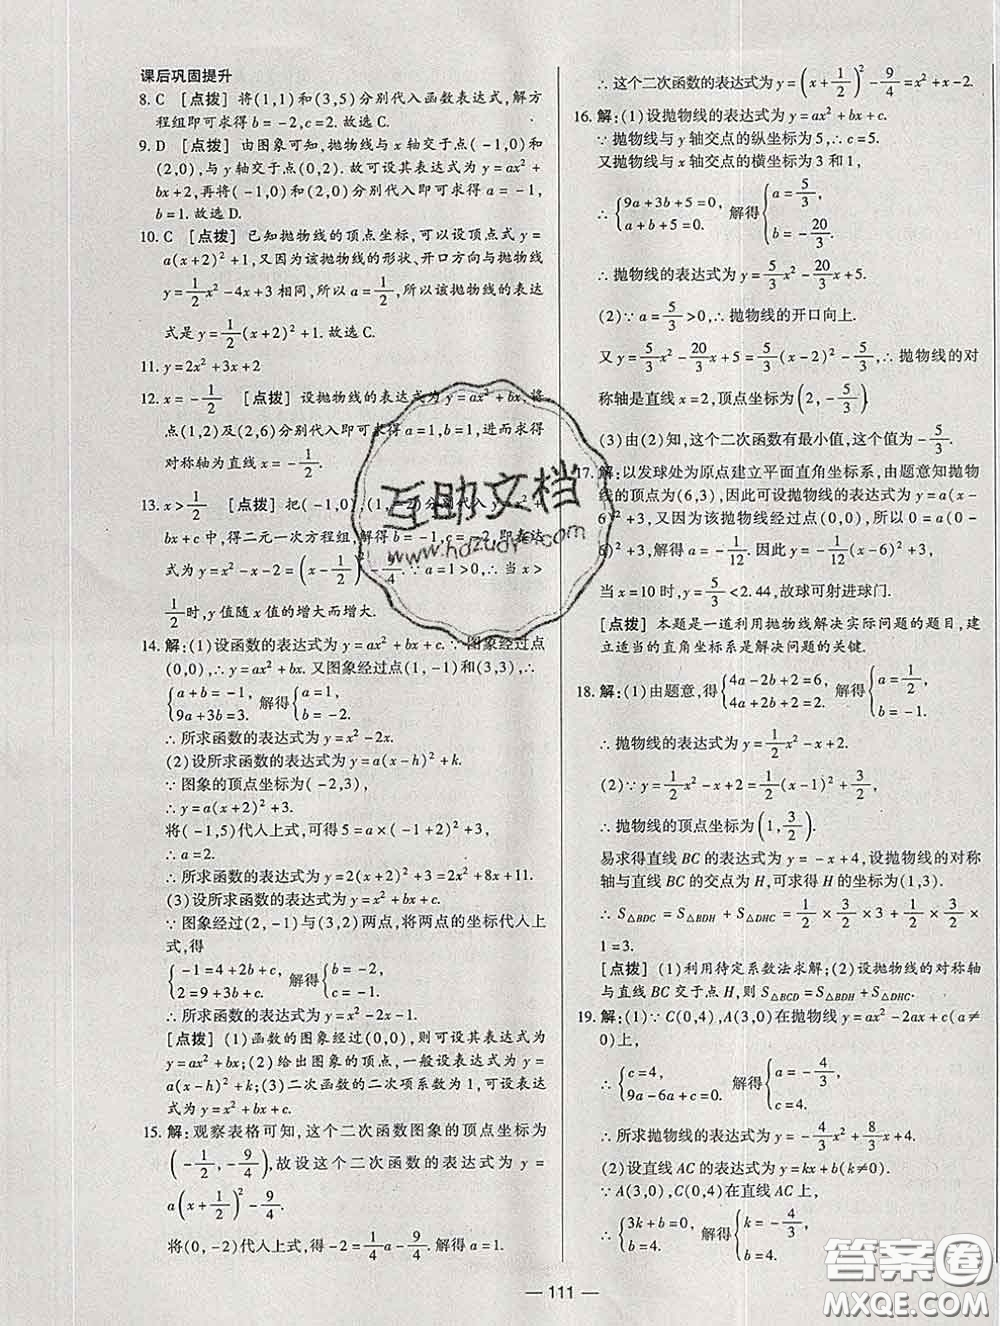 课后巩固提升
8. C [点拨] 将(1,1)和(3,5)分别代入函数表达式,解方
程组即可求得b=-2,c=2.故选C.
9. D [点拨] 由图象可知,抛物线与x轴交于点(-1,0)和
(2,0),与y轴交于点(0,2).故可设其表达式为y=ax²+
bx+2,再将(-1,0)和(2,0)分别代入即可求得a=-1,
b=1.故选D.
10. C [点拨] 已知抛物线的顶点坐标,可以设顶点式y=
a(x+2)²+1,又因为该抛物线的形状、开口方向与抛物线
y=1/2x²-4x+3相同,所以a=1/2,所以该抛物线的表达
式是y=1/2(x+2)²+1.故选C.
11. y=2x²+3x+2
12. x=-1/2 [点拨] 设抛物线的表达式为y=ax²+bx,将
点(1,2)及(2,6)分别代入即可求得a=1,b=1,进而求得
对称轴为直线x=-1/2.
13. x>1/2 [点拨] 把(-1,0),(1,-2)代入y=x²+
bx+c中,得二元一次方程组,解得b=-1,c=-2,即表达
式为y=x²-x-2=(x-1/2)²-9/4.∵a=1>0,∴当x>
1/2时,y值随x值的增大而增大.
14. 解:(1)设函数的表达式为y=ax²+bx+c.∵图象经过点
(0,0),∴y=ax²+bx.又图象经过点(1,-1)和(3,3),∴
{a+b=-1, 9a+3b=3. 解得{a=1, b=-2.
∴所求函数的表达式为y=x²-2x.
(2)设所求函数的表达式为y=a(x-h)²+k.
∵图象的顶点坐标为(-2,3),
∴y=a(x+2)²+3.
将(-1,5)代入上式,可得5=a×(-1+2)²+3,
∴a=2.
∴所求函数的表达式为y=2(x+2)²+3=2x²+8x+11.
(3)设所求函数的表达式为y=x²+bx+c.
∵图象经过(2,-1)与(3,2)两点,将两点的坐标代入上
式,得
{-1=4+2b+c, 2=9+3b+c, 解得{b=-2, c=-1.
∴所求函数的表达式为y=x²-2x-1.
[点拨] (1)函数的图象经过(0,0),则可设其表达式为
y=ax²+bx;(2)给出图象的顶点,一般设表达式为y=
a(x-h)²+k;(3)二次函数的二次项系数为1,可设表达
式为y=x²+bx+c.
15. 解:观察表格可知,这个二次函数图象的顶点坐标为
(-1/2,-9/4),故设这个二次函数的表达式为y=
a(x+1/2)²-9/4.
将(0,-2)代入上式,得-2=1/4a-9/4.解得a=1.
∴这个二次函数的表达式为y=(x+1/2)²-9/4=x²+x-2.
16. 解:(1)设抛物线的表达式为y=ax²+bx+c.
∵抛物线与y轴交点的纵坐标为5,∴c=5.
又抛物线与x轴交点的横坐标为3和1,
∴{9a+3b+5=0, a+b+5=0. 解得{a=5/3, b=-20/3.
∴抛物线的表达式为y=5/3x²-20/3x+5.
(2)∵a=5/3>0,∴抛物线的开口向上.
又y=5/3x²-20/3x+5=5/3(x-2)²-5/3,∴抛物线的对
称轴是直线x=2,顶点坐标为(2,-5/3).
(3)由(2)知,这个二次函数有最小值,这个值为-5/3.
17. 解:以发球处为原点建立平面直角坐标系,由题意知抛物
线的顶点为(6,3),因此可设抛物线的表达式为y=a(x-
6)²+3,又因为该抛物线经过点(0,0),所以0=a(0-
6)²+3,所以a=-1/12.因此y=-1/12(x-6)²+3,
当x=10时,y=5/3<2.44,故球可射进球门.
[点拨] 本题是一道利用抛物线解决实际问题的题目,建
立适当的直角坐标系是解决问题的关键.
18. 解:(1)由题意,得{4a-2b+2=6, 4a+2b+2=2. 解得{a=1/2, b=-1.
∴抛物线的表达式为y=1/2x²-x+2.
(2)∵y=1/2x²-x+2=1/2(x-1)²+3/2,
∴抛物线的顶点坐标为(1,3/2).
易求得直线BC的表达式为y=-x+4,设抛物线的对称
轴与直线BC的交点为H,可求得H(1,3).
∴S△BDC=S△BDH+S△DHC=1/2×3/2×3+1/2×3/2×
1=3.
[点拨] (1)利用待定系数法求解;(2)设抛物线的对称轴
与直线BC交于点H,则S△BCD=S△BDH+S△DHC.
19. 解:(1)∵C(0,4),A(3,0)在抛物线y=ax²-2ax+c(a≠
0)上,
∴{c=4, 9a-6a+c=0. 解得{a=-4/3, c=4.
∴所求抛物线的表达式为y=-4/3x²+8/3x+4.
(2)设直线AC的表达式为y=kx+b(k≠0).
∵A(3,0),C(0,4)在直线AC上,
∴{3k+b=0, b=4. 解得{k=-4/3, b=4.
— 111 —
互助文档
答案卷
MXQE.COM